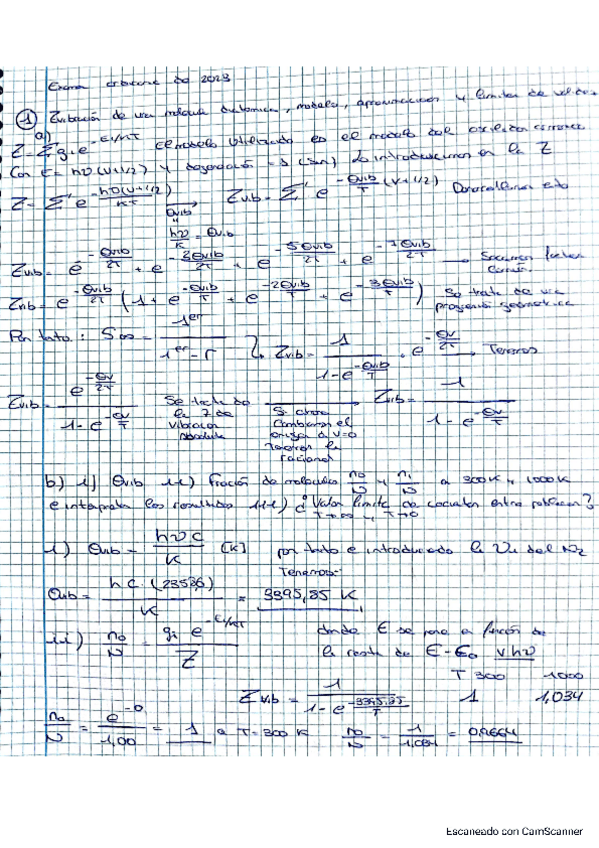 Exama de 2023
① Vibración de una molécula diatómica, modelo, aproximaciones y límites de validez
a)
Z = Σ gi e^-Ei/KT El modelo utilizado es el modelo del oscilador armónico
Con E = hν(v+1/2) y degeneración = 1 lo introducimos en la Z
Z = Σ e^-hν(v+1/2)/KT → Zvib = Σ e^-Θvib/T (v+1/2) Desarrollemos
hν/K = Θvib
Zvib = e^-Θvib/2T + e^-3Θvib/2T + e^-5Θvib/2T + e^-7Θvib/2T → Sacamos factor común
Zvib = e^-Θvib/2T (1 + e^-Θvib/T + e^-2Θvib/T + e^-3Θvib/T) Se trata de una progresión geométrica
Por tanto: S∞ = 1er/1er - r Zvib = 1/1-e^-Θvib/T · e^-Θv/2T → Tenemos
Zvib = e^-Θv/2T/1-e^-Θv/T Se trata de la Z de vibración absoluta Si ahora cambiamos el origen a v=0 tenemos la racional Zvib = 1/1-e^-Θv/T
b) i) Θvib ii) fracción de moléculas n0/N y n1/N a 300K y 1000K
e interpreta los resultados iii) ¿Valor límite de cociente entre poblaciones?
T→∞ y T→0
i) Θvib = hνc/K [K] por tanto e introduciendo la del N2
Tenemos:
Θvib = hc·(2358,6)/K = 3395,85 K
ii) n0/N = gi e^-Ei/KT/Z donde E se pone en función de
la resta de E-E0 vhν
T 300 1000
Zvib = 1/1-e^-3395,85/T 1 1,034
n0/N = e^-0/1,00 = 1 a T=300 K n0/N = 1/1,034 = 0,9664
Escaneado con CamScanner